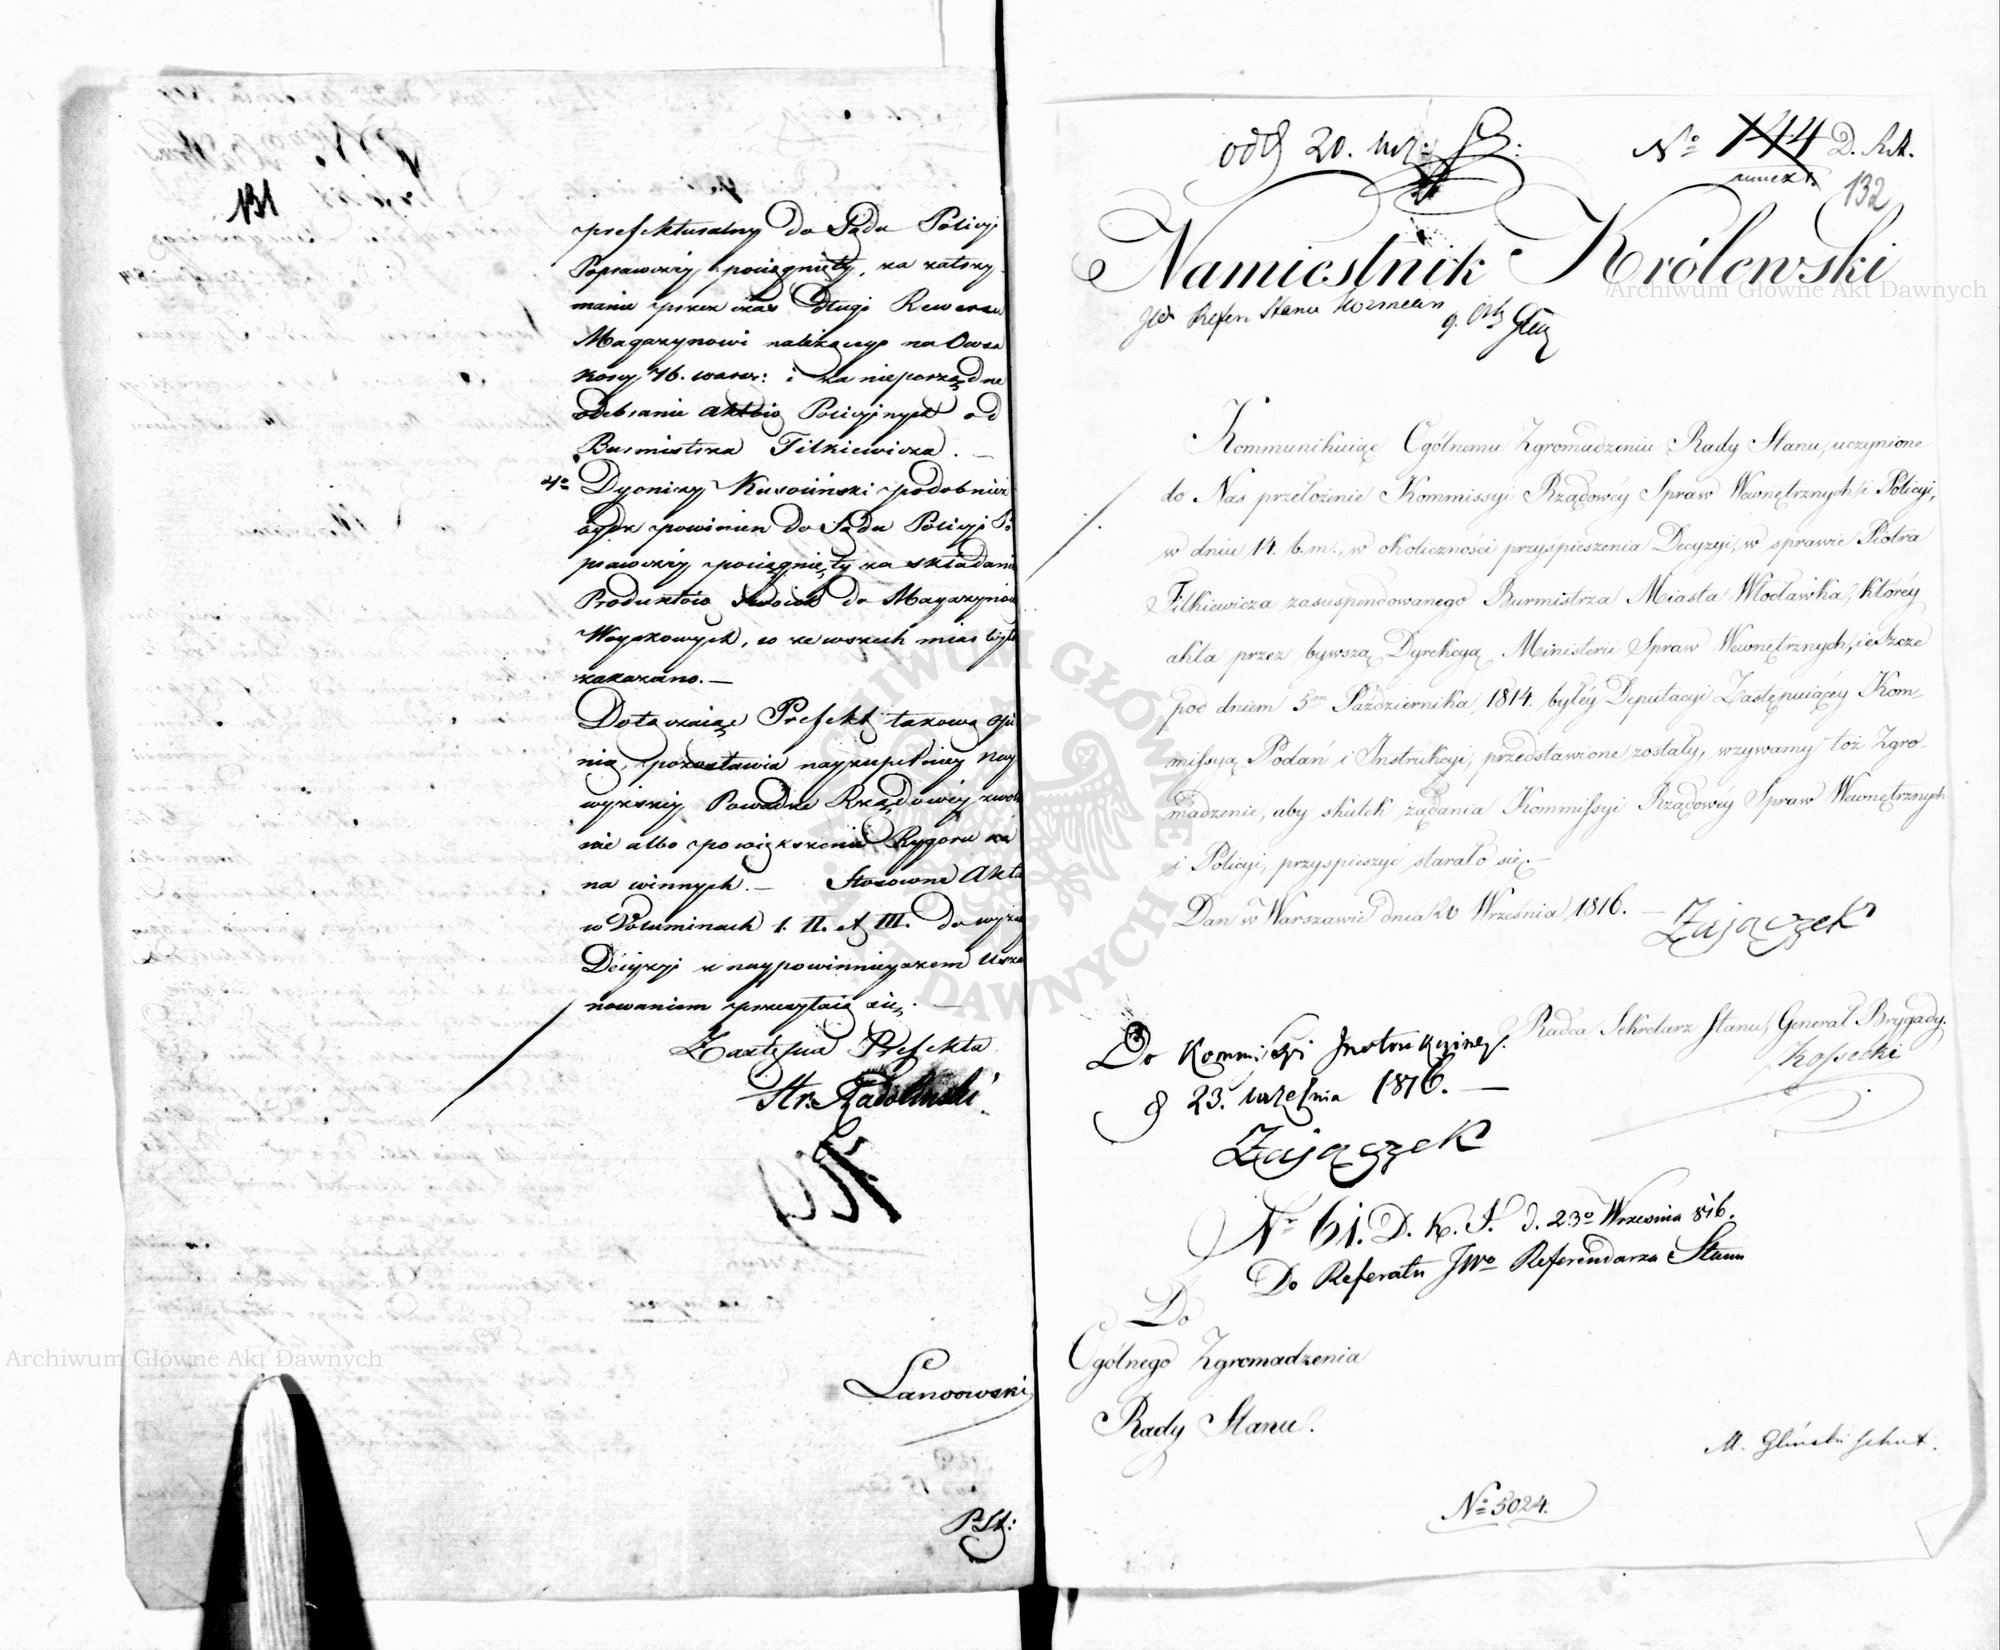 131
prefekturalny do Sądu Policyi
Poprawczey pociągnięty, za zatrzy
manie przez czas długi Rewersu
Magazynowi należącego na Owsa
korcy 76. warsz: i za nieporządne
odebranie aktów Policyinych od
Burmistrza Filkiewicza. —
4o Dyonizy Kusociński podobnież
bydź powinien do Sądu Policyi Po
prawczey pociągnięty za składanie
Produktów do Magazynów
Woyskowych, co ze wszech miar było
zakazano. —
Dołączaiąc Prefekt takową opi
nią, pozostawia nayzupełniey Nay
wyższey Powadze Rządowey zwol
nie albo powiększenie Rygoru na
na winnych. — Stosowne Akta
w Voluminach I. II. et III. do
Decyzyi z naypowinnieyszem Usza
nowaniem przesyłaią się. —
Zastępca Prefekta
Str. Radoliński
Lanoowski
P. St:
odd 20.
No 144 D. R.
132
Namiestnik Królewski
Refer. Stanu Kozmian
Kommunikuiąc Ogólnemu Zgromadzeniu Rady Stanu, uczynione
do Nas przełożenie Kommissyi Rządowéy Spraw Wewnętrznych i Policyi,
w dniu 14. b.m., w okoliczności przyśpieszenia Decyzyi, w sprawie Piotra
Filkiewicza zasuspendowanego Burmistrza Miasta Włocławka, któréy
akta przez bywszą Dyrekcyą Ministerii Spraw Wewnętrznych, ieszcze
pod dniem 5m Października 1814. byłéy Deputacyi Zastępuiącéy Kom-
missyą Podań i Instrukcyi, przedstawione zostały, wzywamy toż Zgro-
madzenie, aby skutek żądania Kommissyi Rządowéy Spraw Wewnętrznych
i Policyi, przyspieszyć starało się. —
Dan w Warszawie dnia 20 Września 1816. —
Zajączek
Radca Sekretarz Stanu, Generał Brygady.
Kossecki
Do Kommissyi Instrukcyiney.
d 23. września 1816. —
Zajączek
No 61. D. K. I. d. 23o Września 816.
Do Referatu JWo Referendarza Stanu
Do
Ogólnego Zgromadzenia
Rady Stanu.
M. Gliński
No 5024.
Archiwum Główne Akt Dawnych
Archiwum Główne Akt Dawnych
ARCHIWUM GŁÓWNE AKT DAWNYCH